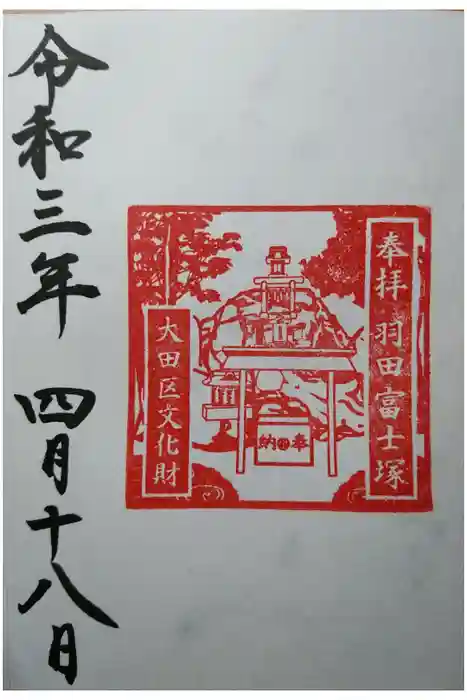 奉拝 羽田富士塚
奉納
大田区文化財
令和三年 四月十八日